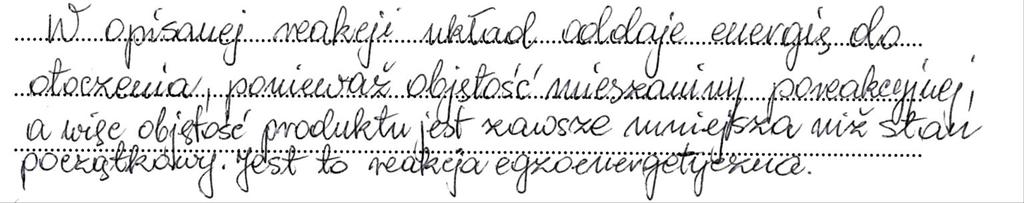 W opisanej reakcji układ oddaje energię do
otoczenia, ponieważ objętość mieszaniny poreakcyjnej,
a więc objętość produktu jest zawsze mniejsza niż stan
początkowy. Jest to reakcja egzoenergetyczna.